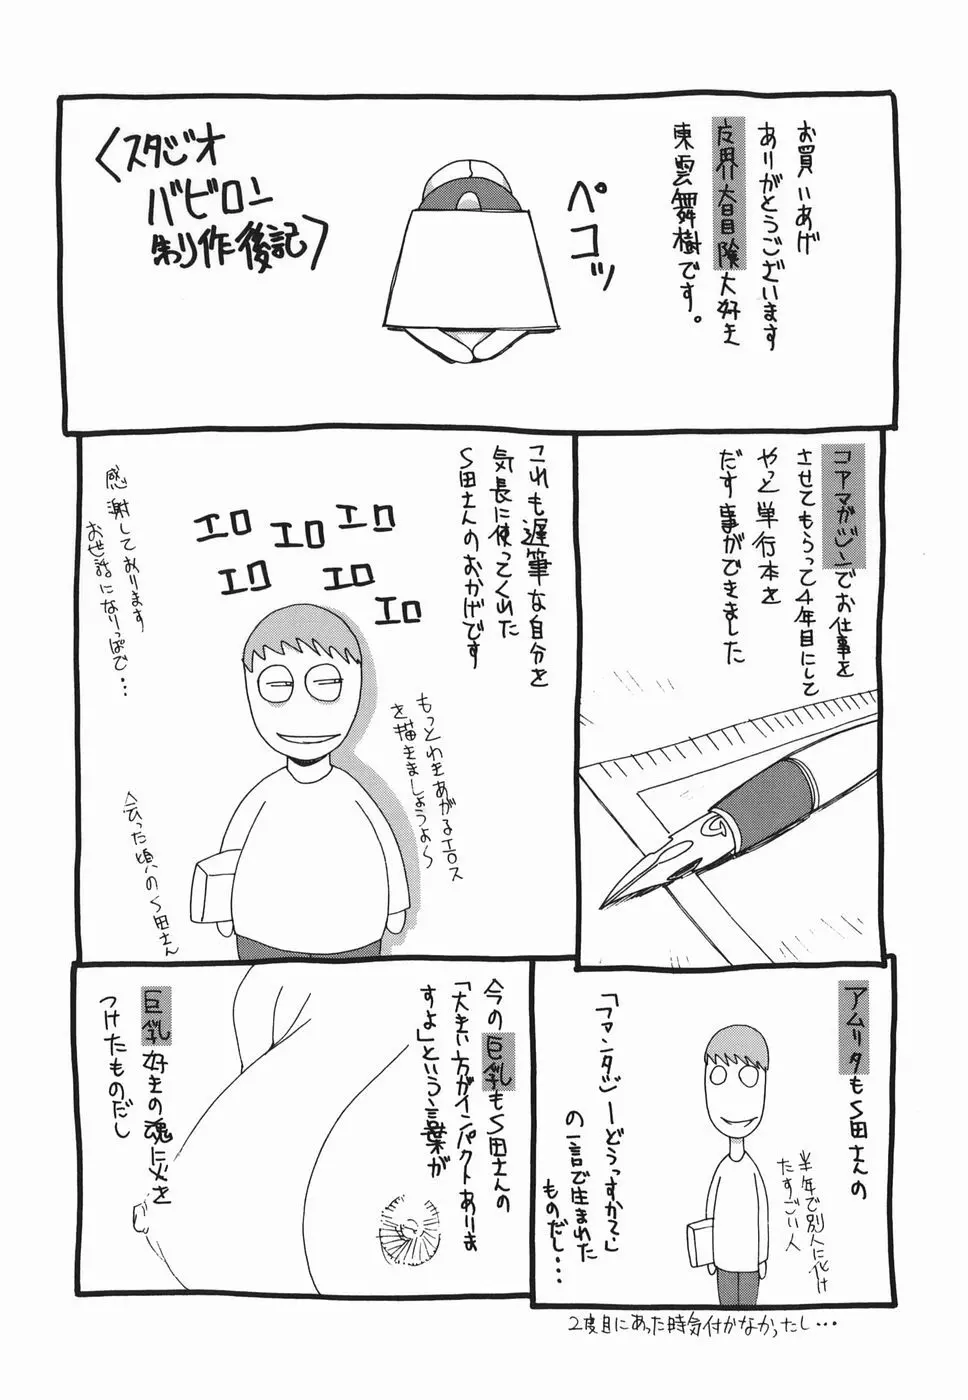 お買いあげ
ありがとうございます
皮界大冒険大好き
東雲舞樹です。
ペコッ
〈スタジオ
バビロン
制作後記〉
コアマガジンでお仕事を
させてもらって4年目にして
やっと単行本を
だす事ができました
これも遅筆な自分を
気長に使ってくれた
S田さんのおかげです
エロ
エロ
エロ
エロ
エロ
エロ
もっとわきあがるエロス
を描きましょうよ〜
感謝しております
お世話になりっぱで...
会った頃のS田さん
アムリタもS田さんの
「ファンタジーどうっすかて」
の一言で生まれた
ものだし...
半年で別人に化け
たすごい人
2度目にあった時気付かなかったし...
今の巨乳もS田さんの
「大きい方がインパクトありま
すよ」という言葉が
巨乳好きの魂に火を
つけたものだし